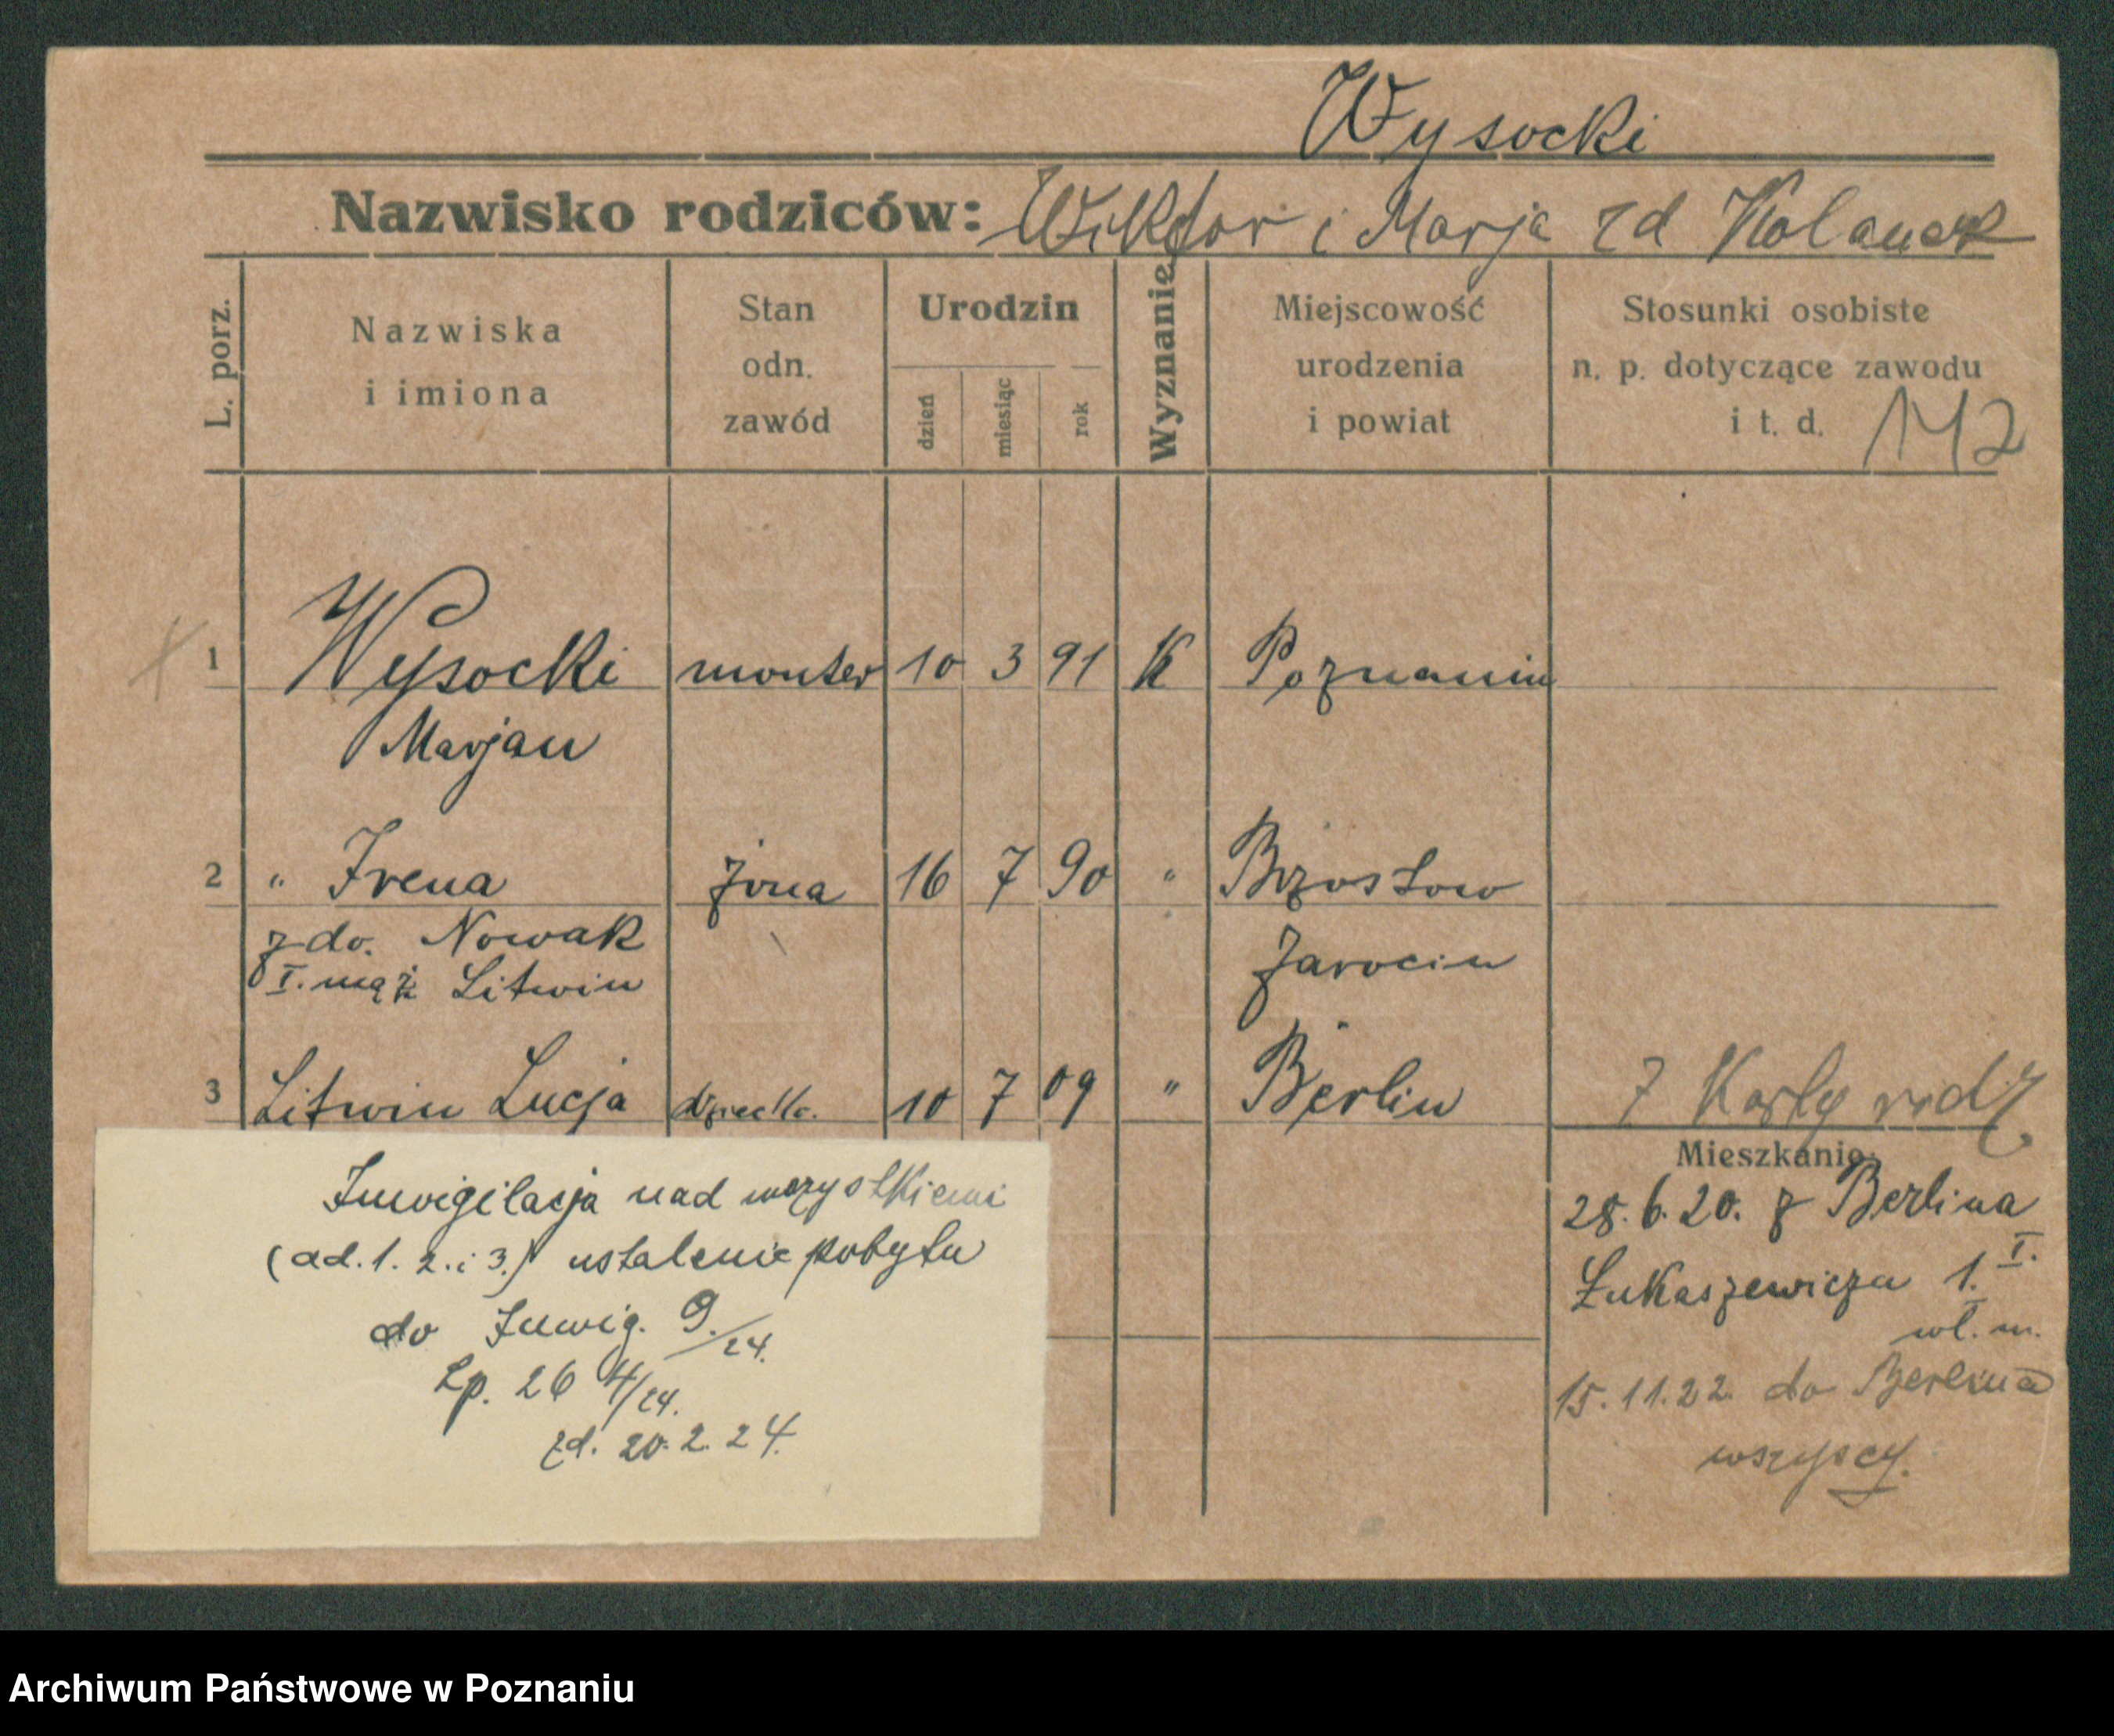 Wysocki
Nazwisko rodziców: Wiktor i Marja zd Kolanek
L. porz.
Nazwiska
i imiona
Stan
odn.
zawód
Urodzin
dzień
miesiąc
rok
Wyznanie
Miejscowość
urodzenia
i powiat
Stosunki osobiste
n. p. dotyczące zawodu
i t. d.
142
1 Wysocki monter 10 3 91 K Poznaniu
Marjan
2 " Irena żona 16 7 90 " Brzostow
z do. Nowak
Jarocin
I. mąż Litwin
3 Litwin Lucja dziecko. 10 7 09 " Berlin
z Karty rodz
Mieszkanie:
28. 6. 20. z Berlina
Łukaszewicza 1. I.
wł. m.
15. 11. 22. do Berlina
wszyscy.
Inwigilacja nad wszystkiemi
(ad. 1. 2. i 3.) ustalenie pobytu
do Inwig. 9./24.
Lp. 26 4/24.
zd. 20. 2. 24.
Archiwum Państwowe w Poznaniu